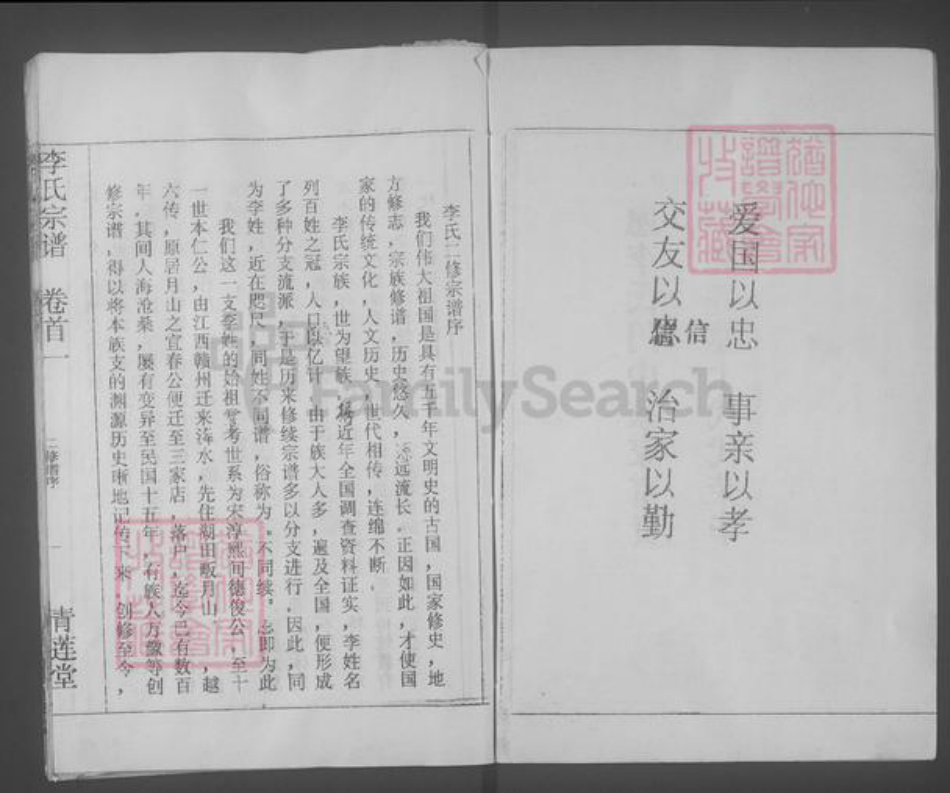 爱国以忠 事亲以孝
交友以信 治家以勤
信
李氏二修宗谱序
我们伟大祖国是具有五千年文明史的古国,国家修史,地
方修志,宗族修谱,历史悠久,源远流长。正因如此,才使国
家的传统文化,人文历史,世代相传,连绵不断。
李氏宗族,世为望族,据近年全国调查资料证实,李姓名
列百姓之冠,人口以亿计,由于族大人多,遍及全国,便形成
了多种分支流派,于是历来修续宗谱多以分支进行,因此,同
为李姓,近在咫尺,同姓不同谱,俗称为“不同续”,亦即为此
我们这一支李姓的始祖,考世系为宋淳熙间德俊公,至十
一世本仁公,由江西赣州迁来浠水,先住湖田畈月山,越
六传,原居月山之宜春公便迁至三家店,落户,迄今已有数百
年,其间人海沧桑,屡有变异至民国十五年,有族人万馥等创
修宗谱,得以将本族支的渊源历史晰地记传下来,创修至今,
李氏宗谱 卷首一
二修谱序
一
青莲堂
FamilySearch